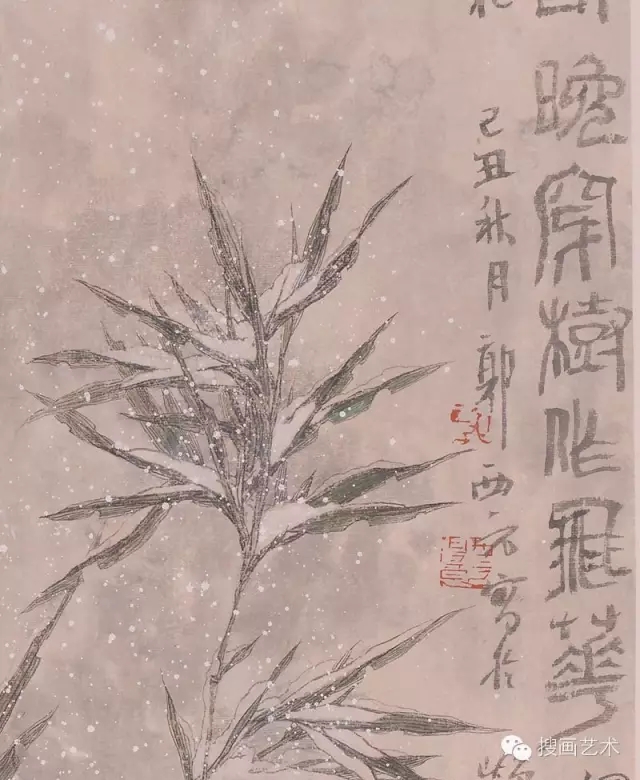 晚穿樹作飛華
己丑秋月郭西元寫於
搜画艺术